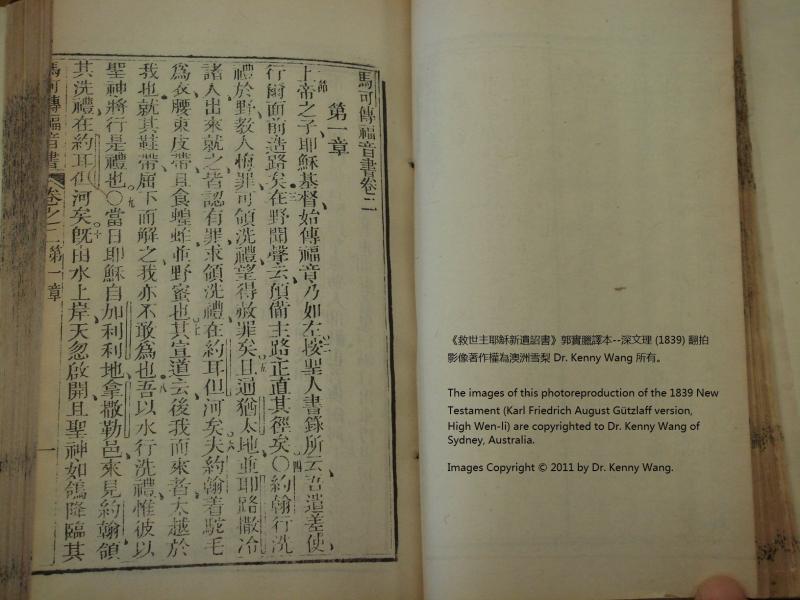 馬可傳福音書卷二
第一章
節
上帝之子耶穌基督始傳福音乃如左按聖人書錄所云吾遣差使
行爾面前造路矣在野聞聲云預備主路正直其徑矣〇約翰行洗
禮於野教人悔罪可領洗禮望得赦罪矣且通猶太地並耶路撒冷
諸人出來就之皆認有罪求領洗禮在約耳但河矣夫約翰着駝毛
為衣腰束皮帶且食蝗蚱並野蜜也其宣道云後我而來者太越於
我也就其鞋帶屈下而解之我亦不敢為也吾以水行洗禮惟彼以
聖神將行是禮也〇當日耶穌自加利利地拿撒勒邑來見約翰領
其洗禮在約耳但河矣既由水上岸天忽啟開且聖神如鴿降臨其
馬可傳福音書 卷之二 第一章 一
《救世主耶穌新遺詔書》郭實臘譯本--深文理 (1839) 翻拍
影像著作權為澳洲雪梨 Dr. Kenny Wang 所有。
The images of this photoreproduction of the 1839 New
Testament (Karl Friedrich August Gützlaff version,
High Wen-li) are copyrighted to Dr. Kenny Wang of
Sydney, Australia.
Images Copyright © 2011 by Dr. Kenny Wang.